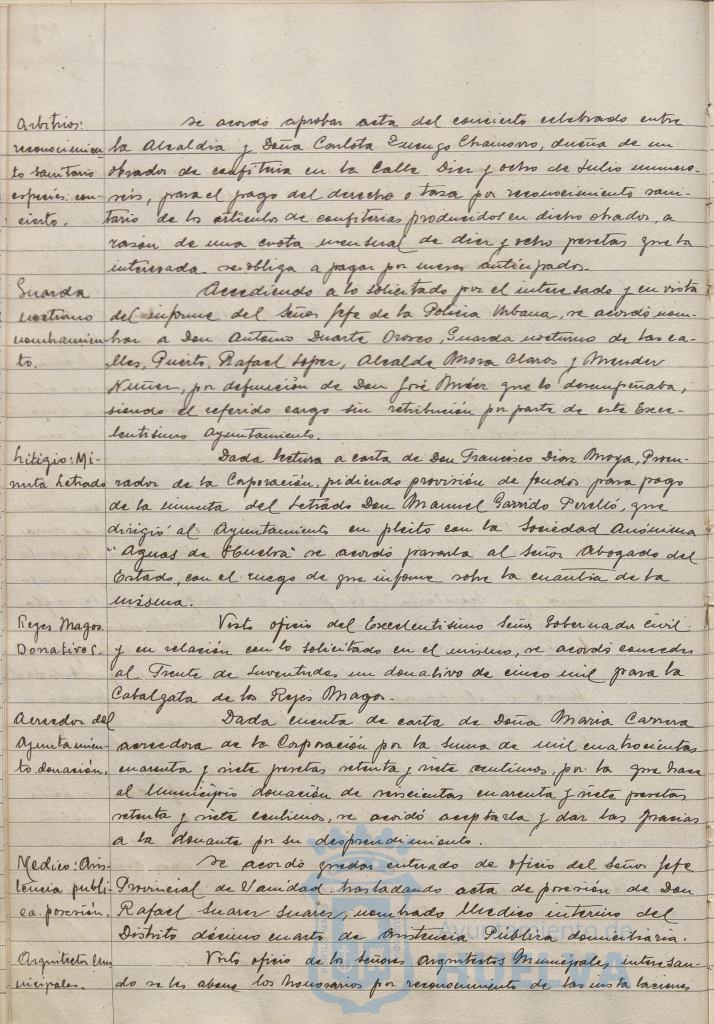 Arbitrios:
reconocimien-
to sanitario
especies: con-
cierto.
Se acordó aprobar acta del concierto celebrado entre
la Alcaldia y Doña Carlota Chamorro, dueña de un
obrador de confitura en la Calle Diez y ocho de Julio numero
seis, para el pago del derecho o tasa por reconocimiento sani-
tario de los articulos de confiterias producidos en dicho obrador, a
razón de una cuota mensual de diez y ocho pesetas que la
interesada se obliga a pagar por meses anticipados.
Guarda
nocturno
nombramien-
to.
Accediendo a lo solicitado por el interesado y en vista
del informe del Señor Jefe de la Policia Urbana, se acordó nom-
brar a Don Antonio Duarte Orosco, Guarda nocturno de las ca-
lles, Puerto, Rafael Lopez, Alcalde Mora Claros y Mendez
Nuñez, por defunción de Don José que lo desempeñaba,
siendo el referido cargo sin retribución por parte de este Exce-
lentisimo Ayuntamiento.
Litigio: Mi-
nuta Letrado
Dada lectura a carta de Don Francisco Diaz Moya, Procu-
rador de la Coporación, pidiendo provisión de fondos para pago
de la minuta del Letrado Don Manuel Garrido Perelló, que
dirigió al Ayuntamiento en pleito con la Sociedad Anónima
"Aguas de Huelva" se acordó pasarla al Señor Abogado del
Estado, con el ruego de que informe sobre la cuantia de la
misma.
Reyes Magos.
Donativos.
Visto oficio del Excelentisimo Señor Gobernador Civil
y en relación con lo solicitado en el mismo, se acordó conceder
al Frente de Juventudes un donativo de cinco mil para la
Cabalgata de los Reyes Magos.
Acreedor del
Ayuntamien-
to. donación.
Dada cuenta de carta de Doña Maria Carrera
acreedora de la Corporación por la suma de mil cuatrocientas
cuarenta y siete pesetas setenta y siete centimos, por la que hace
al Municipio donación de seiscientas cuarenta y siete pesetas
setenta y siete centimos, se acordó aceptarla y dar las gracias
a la donante por su desprendimiento.
Medico: Asis-
tencia publi-
ca. posesión.
Se acordó quedar enterado de oficio del Señor Jefe
Provincial de Sanidad trasladando acta de posesión de Don
Rafael Suarez Suarez, nombrado Medico interino del
Distrito décimo cuarto de Asistencia Pública domiciliaria.
Arquitectos Mu-
nicipales.
Visto oficio de los señores Arquitectos Municipales, interesan-
do se les abone los honorarios por reconocimiento de las instalaciones
Ayuntamiento de
HUELVA